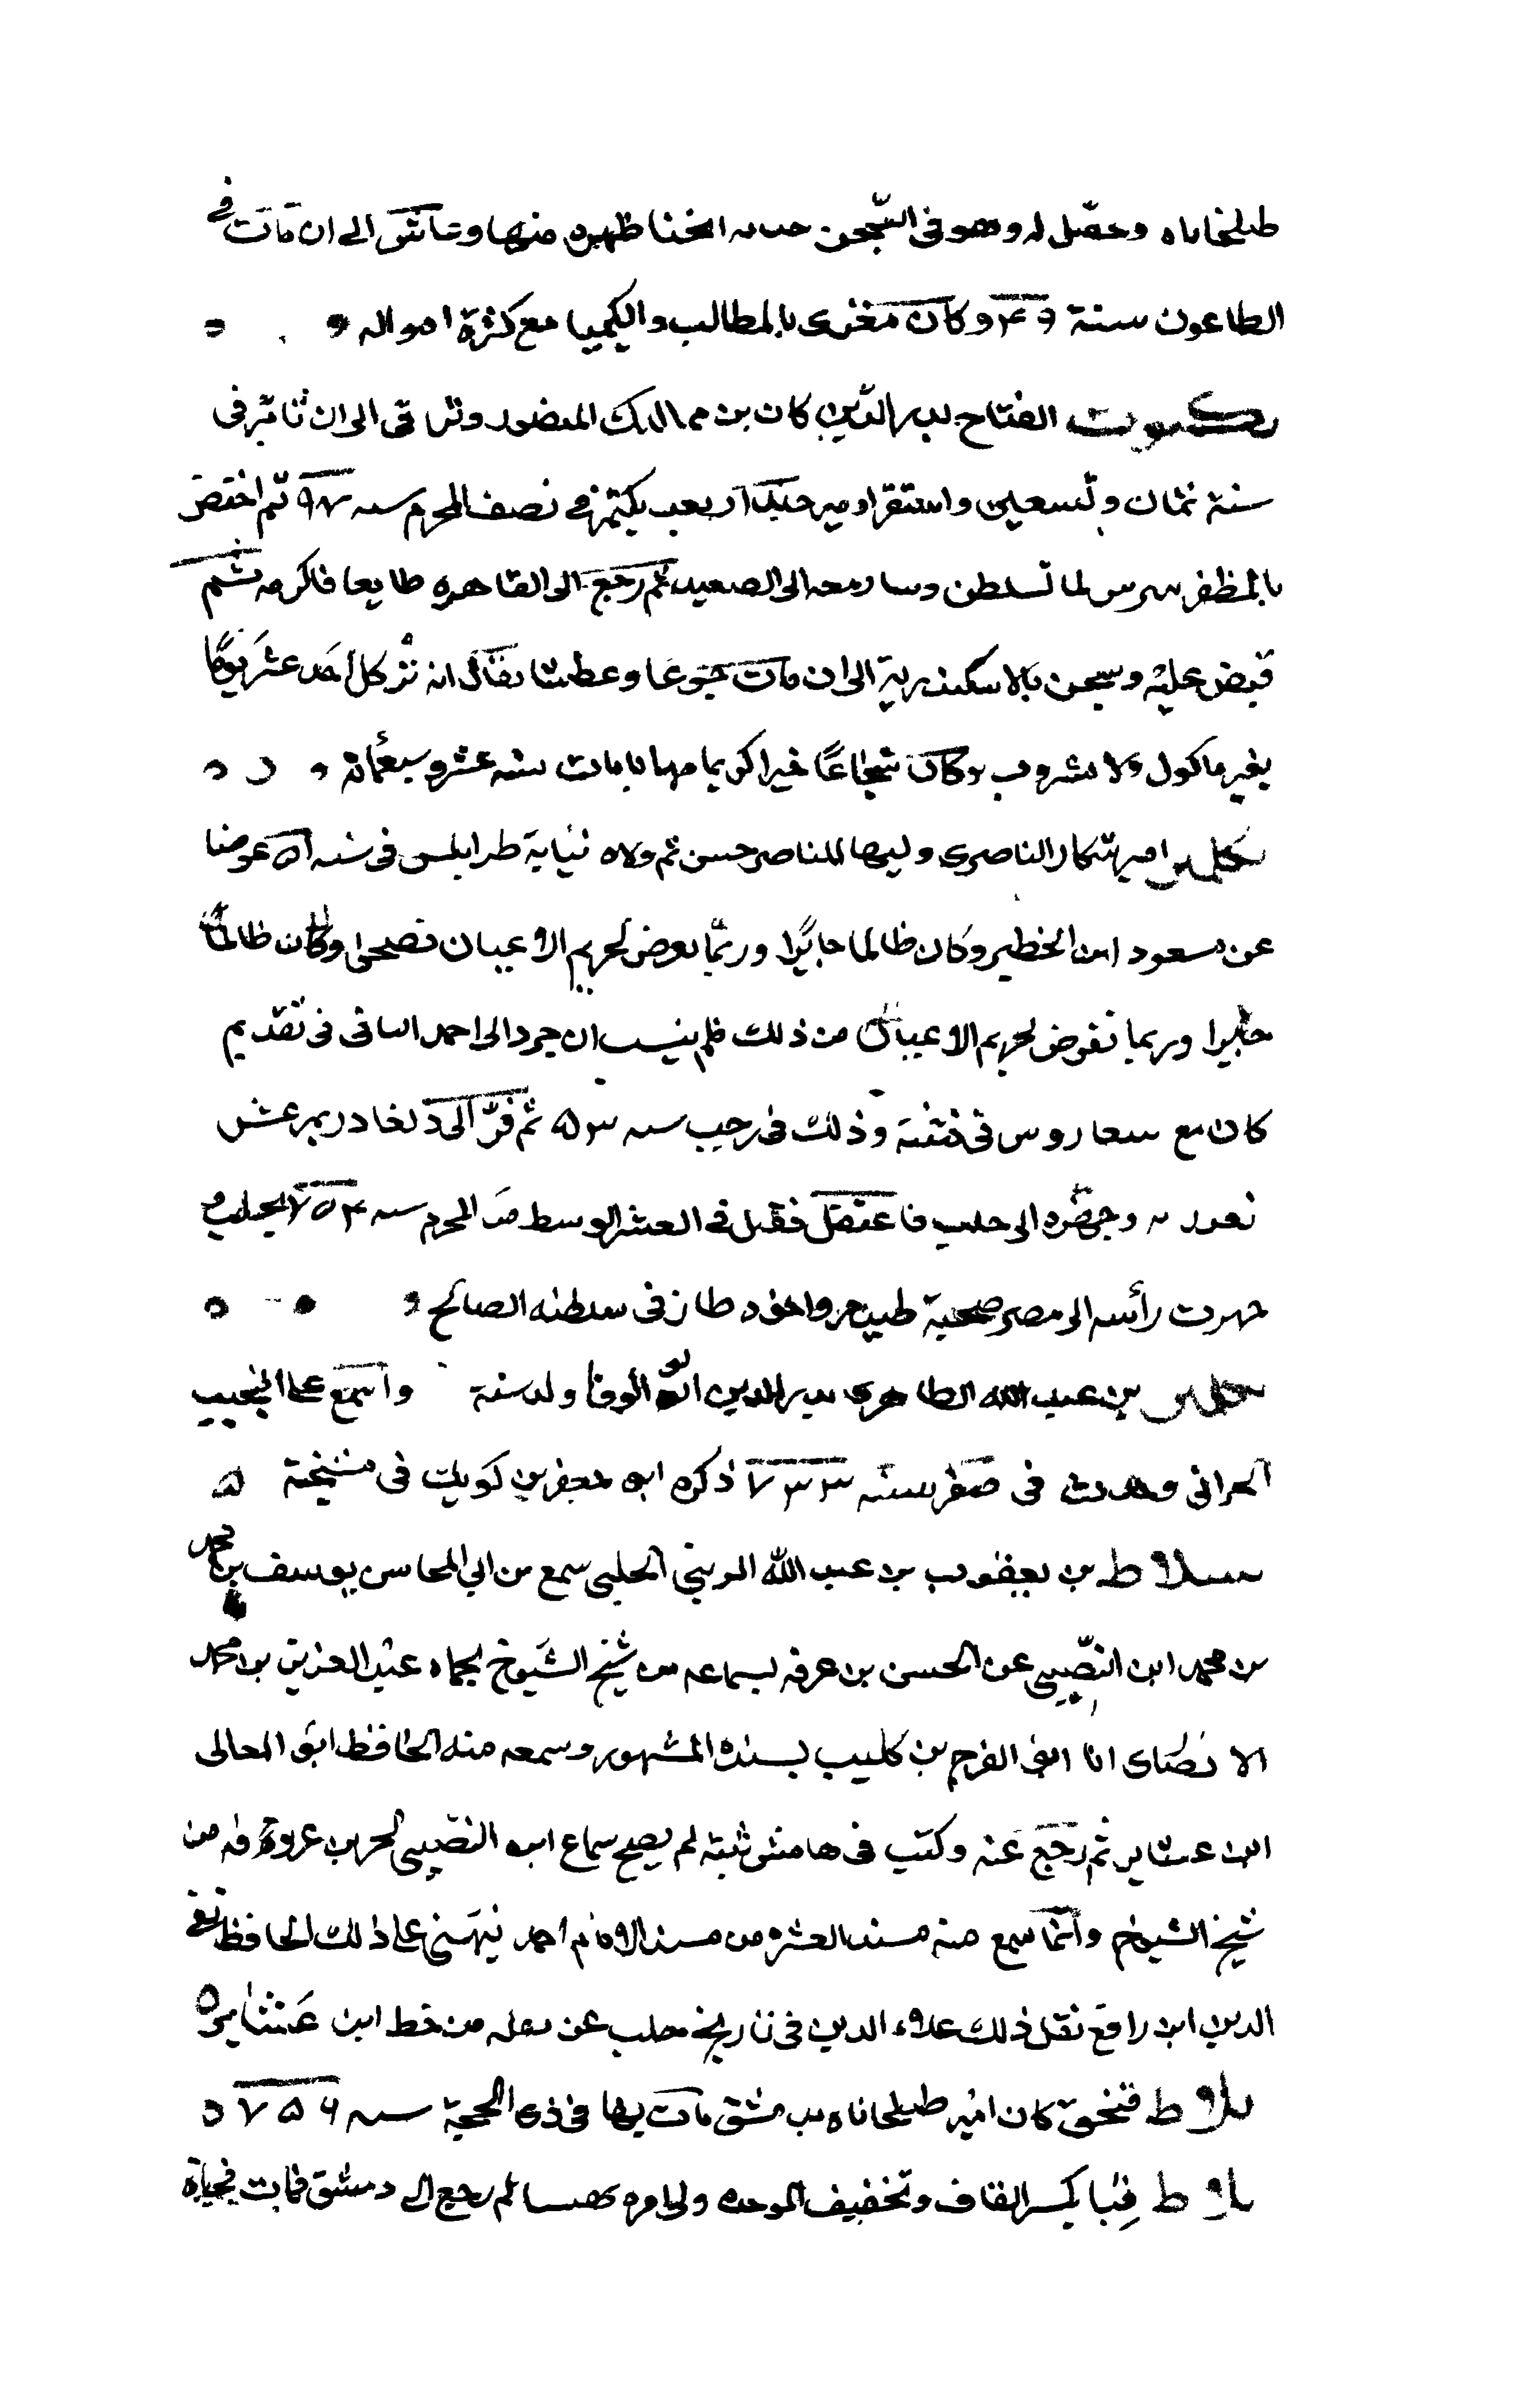 طبلخاناه وحصّل له وهو فى السّجن حدبه انحنا ظهره منها وعاش الى ان مات فى
الطاعون سنة ٤٩ وكان مغرى بالمطالب والكيميا مع كثرة امواله
بكتوت الفتاح بدر الدّين كان من مماليك المنصور وترقى الى ان تامّر فى
سنة ثمان وتسعين واستقر امير جندار بعد بكتمر فى نصف المحرم سنه ٩٨ ثم اختص
بالمظفر بيبرس لما تسلطن وسار معه الى الصعيد ثم رجع الى القاهره طايعا فاكرمه ثم
قبض عليه وسجن بالاسكندرية الى ان مات جوعا وعطشا يقال انه ترك احد عشر يوما
بغير ماكول ولا مشروب وكان شجاعًا خيرا كريما مهابا مات سنه عشر وسبعمائة
امير شكار الناصرى وليها للناصر حسن ثم ولاه نيابة طرابلس فى سنه ٥١ عوضا
عن مسعود ابن الخطير وكان ظالما جايرا وربّما تعرض لحريم الاعيان وكان ظالما
جايرا وربما تعرض لحريم الاعيان من ذلك فلم ينشب ان جرد الى احمد الساقى فى تقديم
كان مع بيبغاروس فى فتنته وذلك فى رجب سنه ٥٣ ثم فرّ الى دلغادر بمرعش
وجهزه الى حلب فاعتقل فقتل فى العشر الوسط من المحرم سنه ٧٥٤ بحلب و
جهزت رأسه الى مصر صحبة طيدمر اخو طاز فى سلطنه الصالح
بن عبد الله الظاهرى بدر الدين ابو الوفا ولد سنة واسمع على النجيب
الحرانى وحدث فى صفر سنه ٧٣٣ ذكره ابو جعفر بن كويك فى مشيخته
بلاط بن يعقوب بن عبد الله الحلبى سمع من ابي المحاسن يوسف بن محمد
بن محمد ابن النصّيبى عن الحسن بن عرفه بسماعه من شيخ الشيوخ بحماه عبد العزيز بن محمد
الانصارى انا ابو الفرج بن كليب بسنده المشهور وسمعه منه الحافظ ابو المعالى
ابن عشاير ثم رجع عنه وكتب فى هامش ثبته لم يصح سماع ابن النصيبى لجزء بن عرفه من
شيخ الشيوخ وانّما سمع منه مسند العشره من مسند الامام احمد نبهنى على ذلك الحافظ تقى
الدين ابن رافع نقل ذلك علاء الدين فى تاريخ حلب عن نقله من خط ابن عشاير
بلاط قبجق كان امير طبلخاناه بدمشق مات بها فى ذى الحجة سنه ٧٥٦
بلاط قبا بكسر القاف وتخفيف الموحده ولى امره ثم رجع الى دمشق فمات فجأة